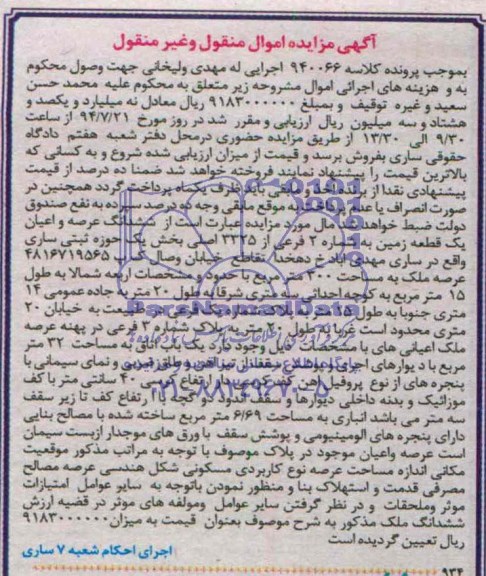 آگهی مزایده اموال منقول وغیر منقول
بموجب پرونده کلاسه ۹۴۰۰۶۶ اجرایی له مهدی ولیخانی جهت وصول محکوم
به و هزینه های اجرائی اموال مشروحه زیر متعلق به محکوم علیه محمد حسن
سعید و غیره توقیف و بمبلغ ۹۱۸۳۰۰۰۰۰۰ ریال معادل نه میلیارد و یکصد و
هشتاد و سه میلیون ریال ارزیابی و مقرر شد در روز مورخ ۹۴/۷/۲۱ از ساعت
۹/۳۰ الی ۱۳/۳۰ از طریق مزایده حضوری درمحل دفتر شعبه هفتم دادگاه
حقوقی ساری بفروش برسد و قیمت از میزان ارزیابی شده شروع و به کسانی که
بالاترین قیمت را پیشنهاد نمایند فروخته خواهد شد ضمنا ده درصد از قیمت
پیشنهادی نقدا از برنده اخذ و مابقی باید ظرف یکماه پرداخت گردد همچنین در
صورت انصراف یا عدم پرداخت به موقع مابقی وجه ده درصد سپرده به نفع صندوق
دولت ضبط خواهد شد مال مورد مزایده عبارت است از ششدانگ عرصه و اعیان
یک قطعه زمین به شماره ۲ فرعی از ۳۳۲۵ اصلی بخش یک حوزه ثبتی ساری
واقع در ساری مهدی آباد خ دهخدا تقاطع خیابان وصال کدپستی ۴۸۱۶۷۱۹۵۶۵
عرصه ملک به مساحت ۳۰۰ متر مربع با حدود و مشخصات اربعه شمالا به طول
۱۵ متر مربع به کوچه احداثی سه متری شرقا به طول ۲۰ متر به جاده عمومی ۱۴
متری جنوبا به طول ۱۵ متر به پلاک شماره یک فرعی در طبیعت به خیابان ۲۰
متری محدود است غربا به طول ۲۰ متر به پلاک شماره ۳ فرعی در پهنه عرصه
ملک اعیانی های با مشخصات ذیل وجود دارد یک باب اتاق به مساحت ۳۲ متر
مربع با دیوارهای اجری و پوشش سقف از تیر آهن و طاق ضربی و نمای سیمانی با
پنجره های از نوع پروفیل آهن کف کرسی با ارتفاع نسبی ۴۰ سانتی متر با کف
موزائیک و بدنه داخلی دیوارها و سقف اندود گچ با ارتفاع کف تا زیر سقف
سه متر می باشد انباری به مساحت ۶/۶۹ متر مربع ساخته شده با مصالح بنایی
دارای پنجره های الومینیومی و پوشش سقف با ورق های موجدار ازبست سیمان
است عرصه واعیان موجود در پلاک موصوف با توجه به مراتب مذکور موقعیت
مکانی اندازه مساحت عرصه نوع کاربردی مسکونی شکل هندسی عرصه مصالح
مصرفی قدمت و استهلاک بنا و منظور نمودن باتوجه به سایر عوامل امتیازات
موثر وملحقات و در نظر گرفتن سایر عوامل ومولفه های موثر در قضیه ارزش
ششدانگ ملک مذکور به شرح موصوف بعنوان قیمت به میزان ۹۱۸۳۰۰۰۰۰۰
ریال تعیین گردیده است
اجرای احکام شعبه ۷ ساری
۹۳۴